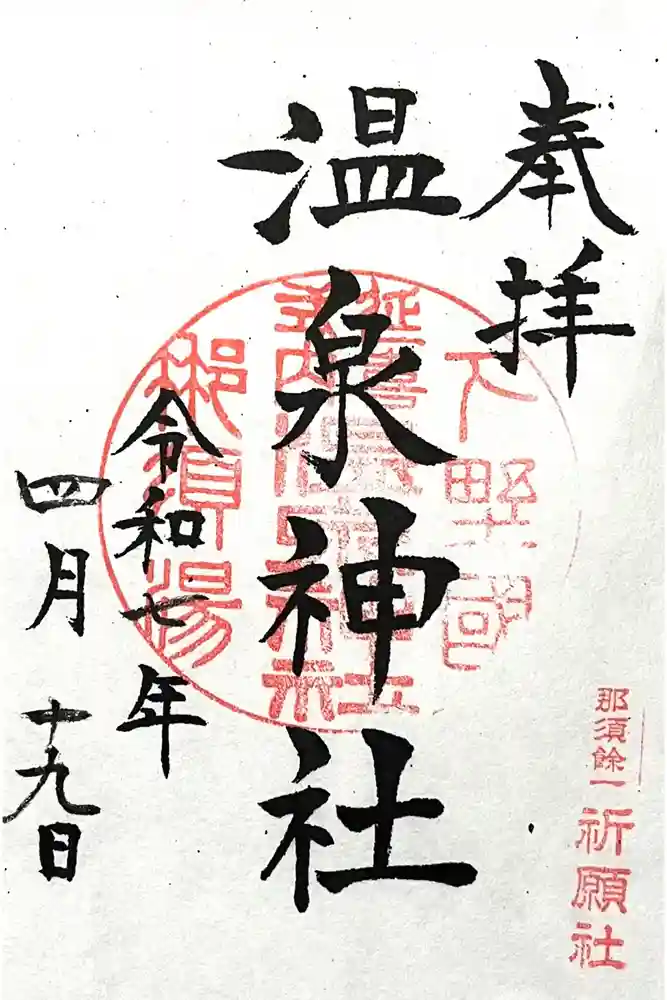 奉拝
温泉神社
令和七年
四月十九日
下野國
延喜式内温泉神社
那須湯
那須餘一
祈願社